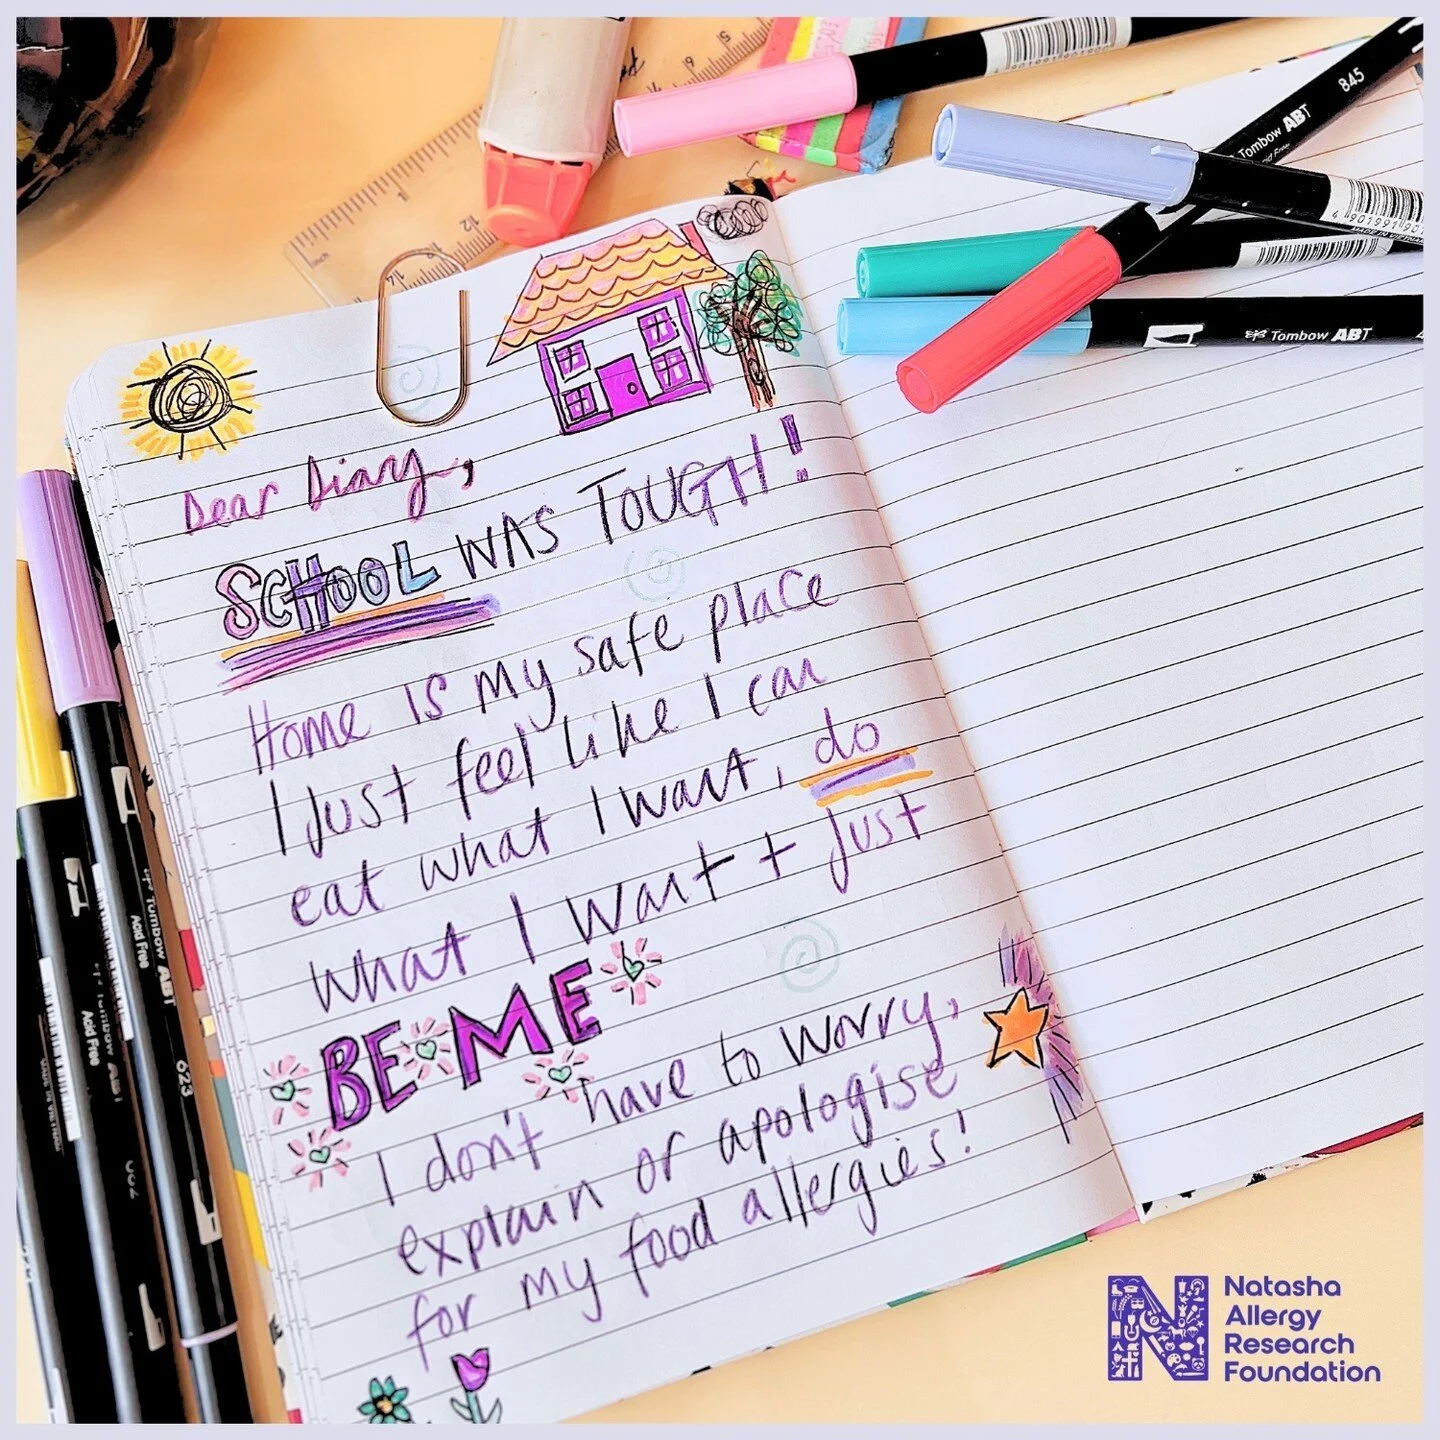 Dear Diary,
SCHOOL WAS TOUGH!
Home is my safe place
I just feel like I can
eat what I want, do
what I want + just
BE ME
I don't have to worry,
explain or apologise
for my food allergies!
Tombow ABT
Acid Free
845
Tombow ABT
4901991901
MADE IN VIETNAM
Tombow ABT
Acid Free
Acid Free
623
Natasha
Allergy
Research
Foundation